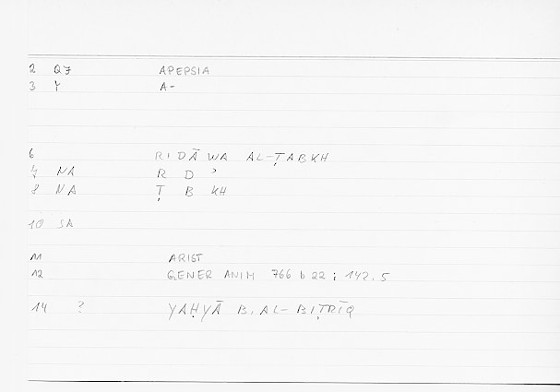 2 QF APEPSIA
3 Y A-
6 RIDĀWA AL-ṬABKH
7 NA R D ʾ
8 NA Ṭ B KH
10 SA
11 ARIST
12 GENER ANIM 766 b 22 ; 142.5
14 ? YAḤYĀ B. AL-BIṬRĪQ